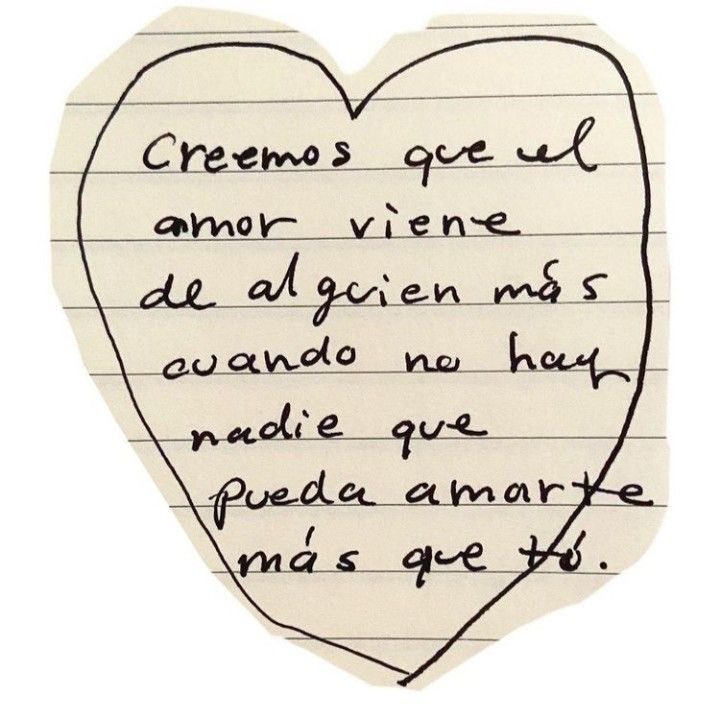 Creemos que el
amor viene
de alguien más
cuando no hay
nadie que
pueda amarte
más que tú.